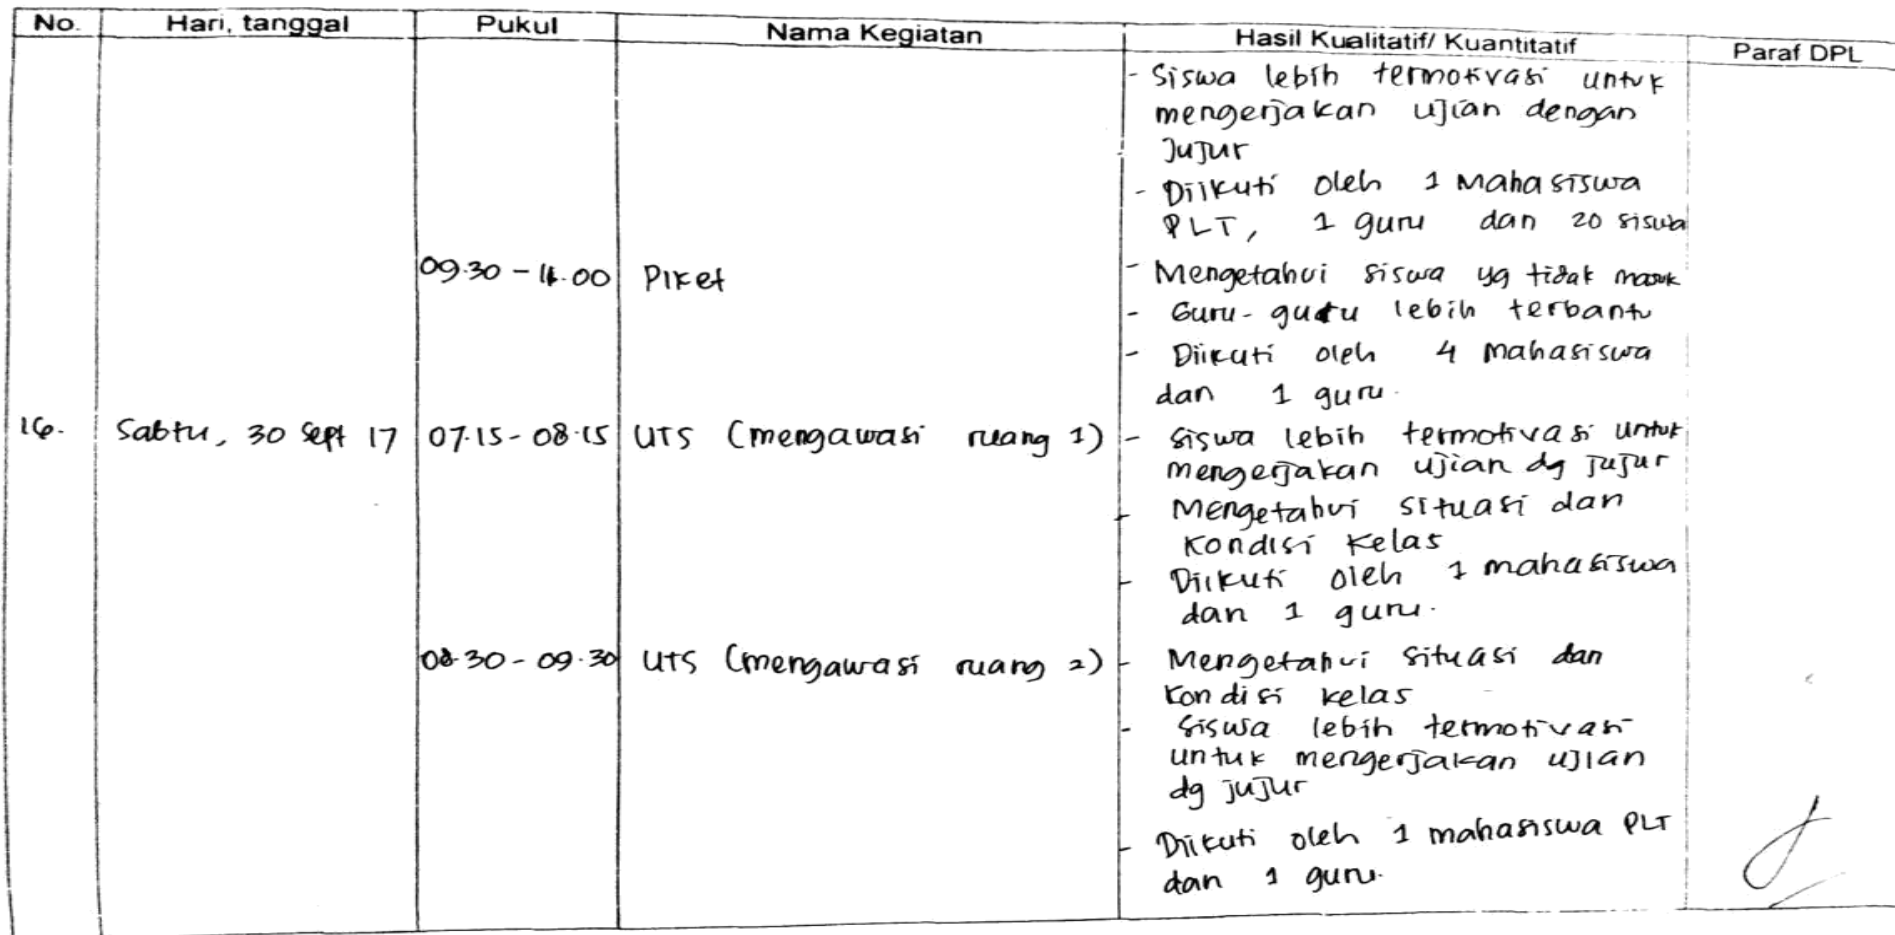 No. Hari, tanggal Pukul Nama Kegiatan Hasil Kualitatif/ Kuantitatif Paraf DPL
- Siswa lebih termotivasi untuk
mengerjakan ujian dengan
jujur
- Diikuti oleh 1 Mahasiswa
PLT, 1 guru dan 20 siswa
09.30 - 11.00 Piket - Mengetahui siswa yg tidak masuk
- Guru-guru lebih terbantu
- Diikuti oleh 4 Mahasiswa
dan 1 guru.
16. Sabtu, 30 Sept 17 07.15 - 08.15 UTS (mengawasi ruang 1) - siswa lebih termotivasi untuk
mengerjakan ujian dg jujur
- Mengetahui situasi dan
kondisi kelas
- Diikuti oleh 1 mahasiswa
dan 1 guru.
08.30 - 09.30 UTS (mengawasi ruang 2) - Mengetahui situasi dan
kondisi kelas
- siswa lebih termotivasi
untuk mengerjakan ujian
dg jujur
- Diikuti oleh 1 mahasiswa PLT
dan 1 guru.